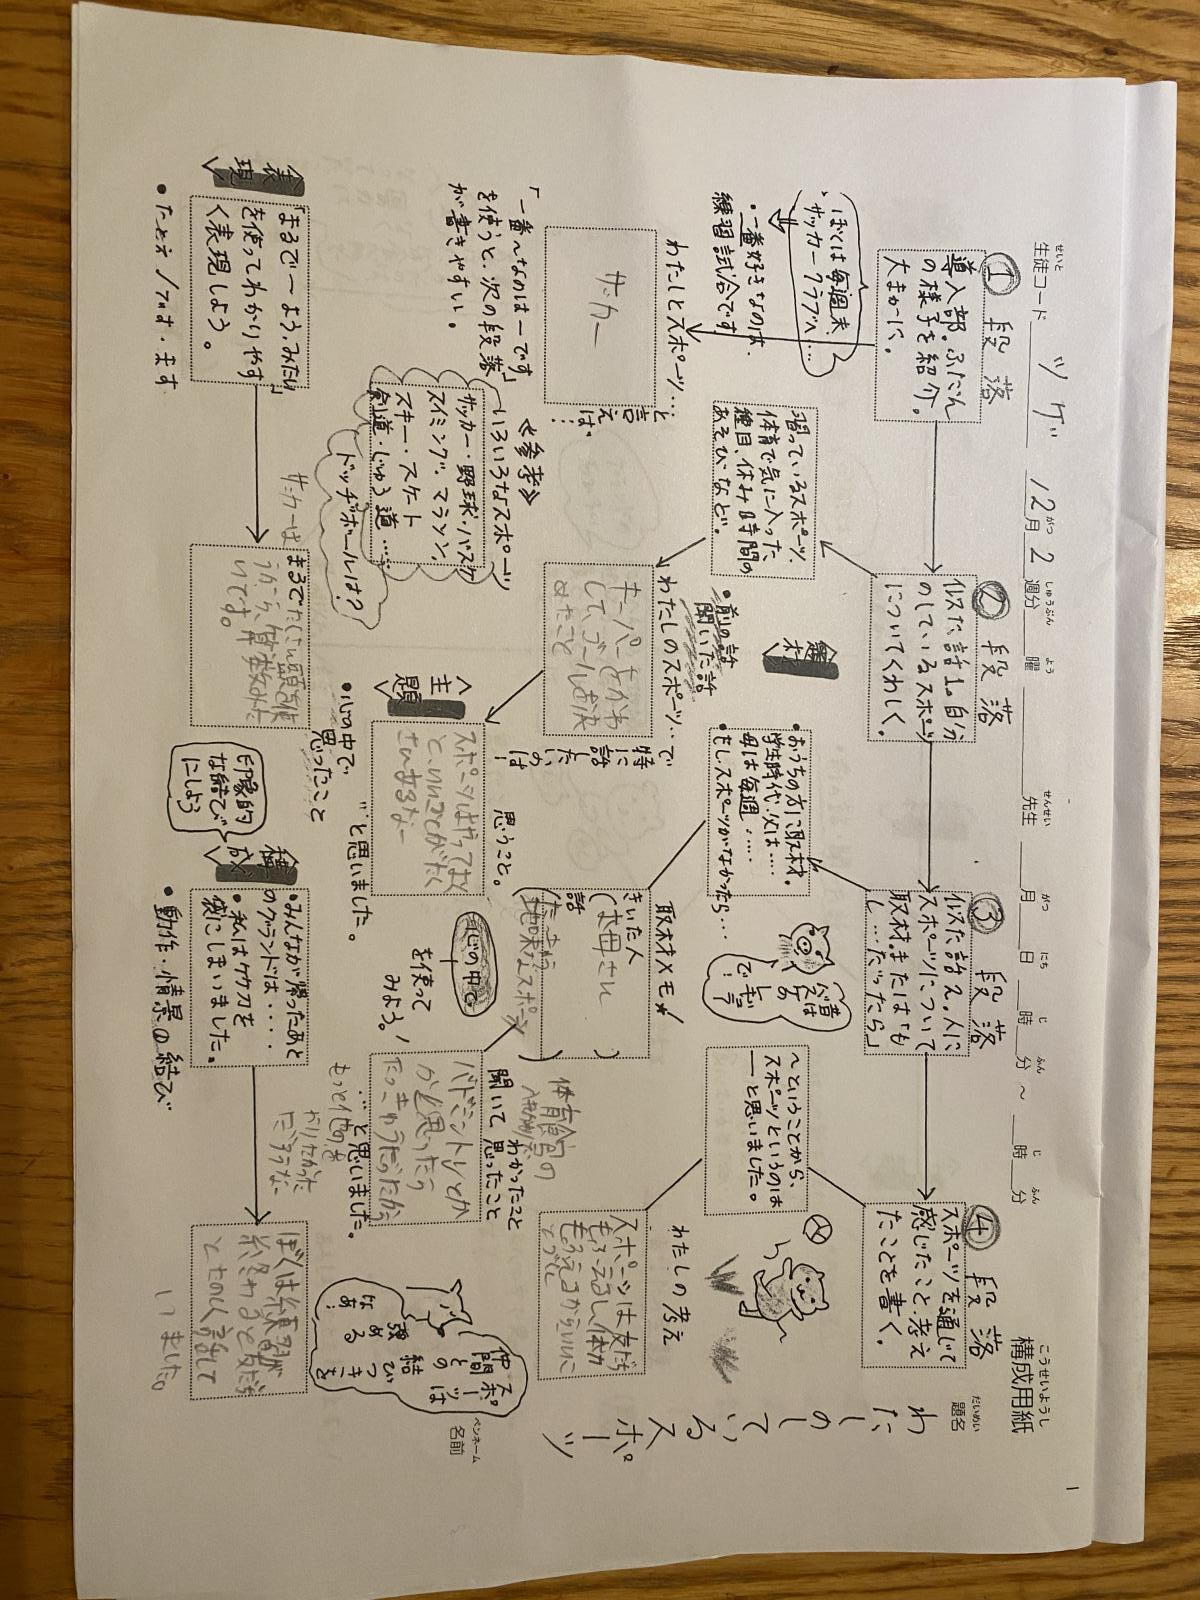 構成用紙
こうせいようし
題名
だいめい
わたしのしているスポーツ
名前
ペンネーム
生徒コード ツゲ 12月2週分 曜 先生 月 日 時 分 ～ 時 分
せいと がつ しゅうぶん よう せんせい がつ にち じ ふん じ ふん
1
①段落
導入部。ふだん
の様子を紹介。
大まかに。
ぼくは毎週末、
サッカークラブへ…
・一番好きなのは、
練習試合です
わたしとスポーツ…
と言えば、…
サッカー
「一番～なのは―です」
を使うと、次の段落
が書きやすい。
②段落
似た話1。自分
のしているスポーツ
についてくわしく。
習っているスポーツ、
体育で気に入った
種目、休み時間の
あそびなど。
題材
・前の話
聞いた話
わたしのスポーツ…で
特に話したいのは！
キーパーをかわ
して、ゴールを決
めたこと
≪参考≫
いろいろなスポーツ
サッカー・野球・バスケ
スイミング、マラソン、
スキー・スケート
剣道・じゅう道……
ドッヂボールは？
主題
・心の中で
思ったこと
思うこと。
スポーツはやってよく
と、いいことがたく
さんあるな―
…”と思いました。
③段落
似た話2。人に
スポーツについて
取材。または「も
し…だったら」
・おうちの方に取材。
学生時代・父は……
母は毎週……
・もし、スポーツがなかったら…
昔は
バスケの
でしたぞ？
取材メモ★
きいた人
（お母さん）
話
地味なスポーツ
体育館の
心の中で
を使って
みよう！
わかったこと
聞いて 思ったこと
バドミントンとか
かと思ったら
たっきゅうだったから
…”と思いました。
もっと他のを
やりたかった
④段落
スポーツを通じて
感じたこと、考え
たことを書く。
～ということから、
スポーツというのは
――と思いました。
わたしの考え
スポーツは友だち
もふえるし体力
もふえるからいいこ
スポーツは
仲間との
結びつきを
強める
なあ！
表現
「まるで～よう、みたい」
を使ってわかりやす
く表現しよう。
・たとえ
サッカーは
まるでたくさん頭を使
うから、算数みた
いです。
印象的
な結び
にしよう
構成
・みんなが帰ったあと
のグランドは・・・
・私はケケ刀を
袋にしまいました。
・動作・情景の結び
ぼくは練習が
終わると友だち